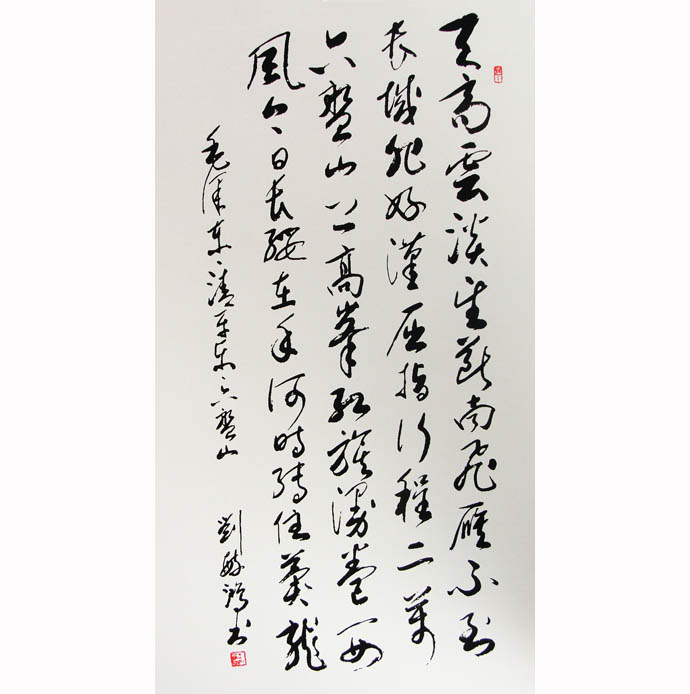 天高雲淡望斷南飛雁不到
长城非好漢屈指行程二萬
六盤山上高峯紅旗漫卷西
風今日长纓在手何時縛住蒼龍
毛澤东清平乐六盤山
劉鴻书